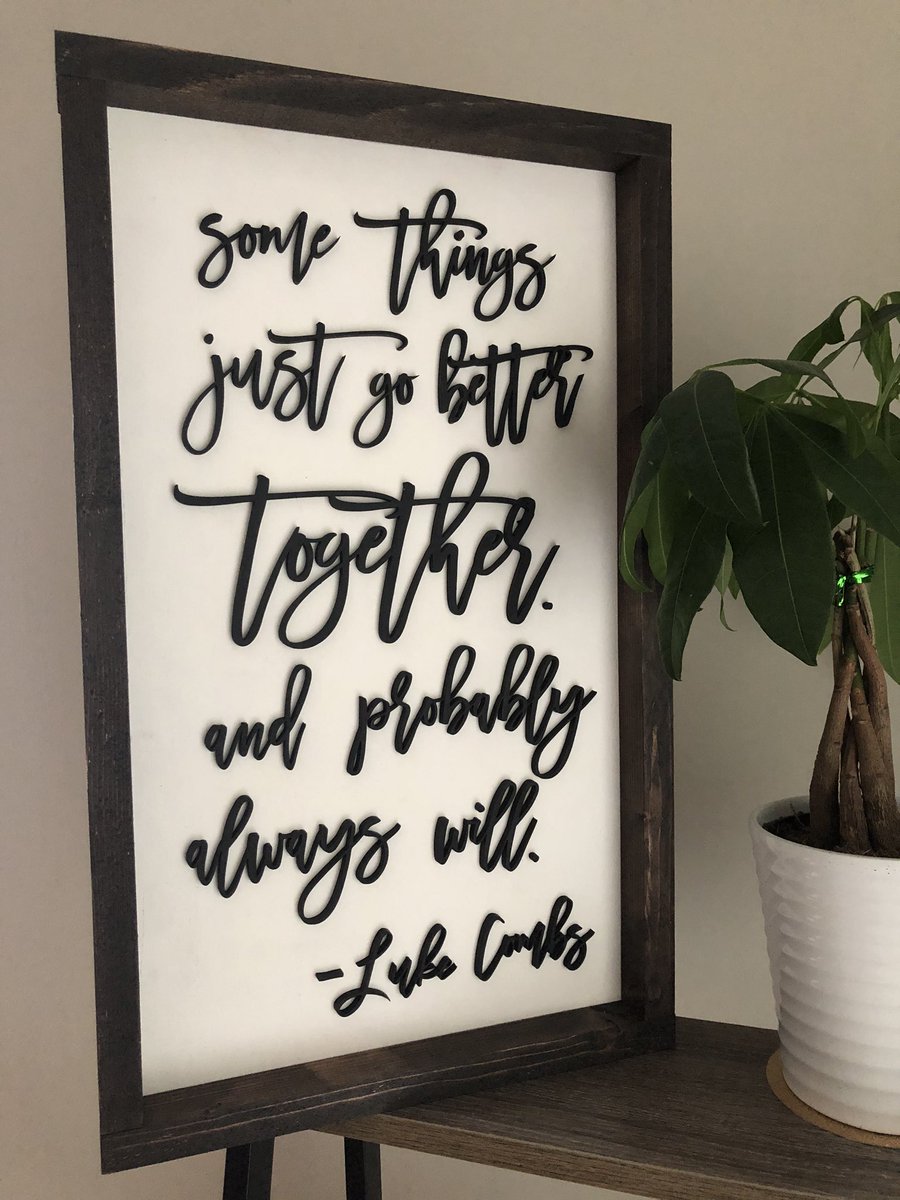 some things
just go better
together.
and probably
always will.
-Luke Combs